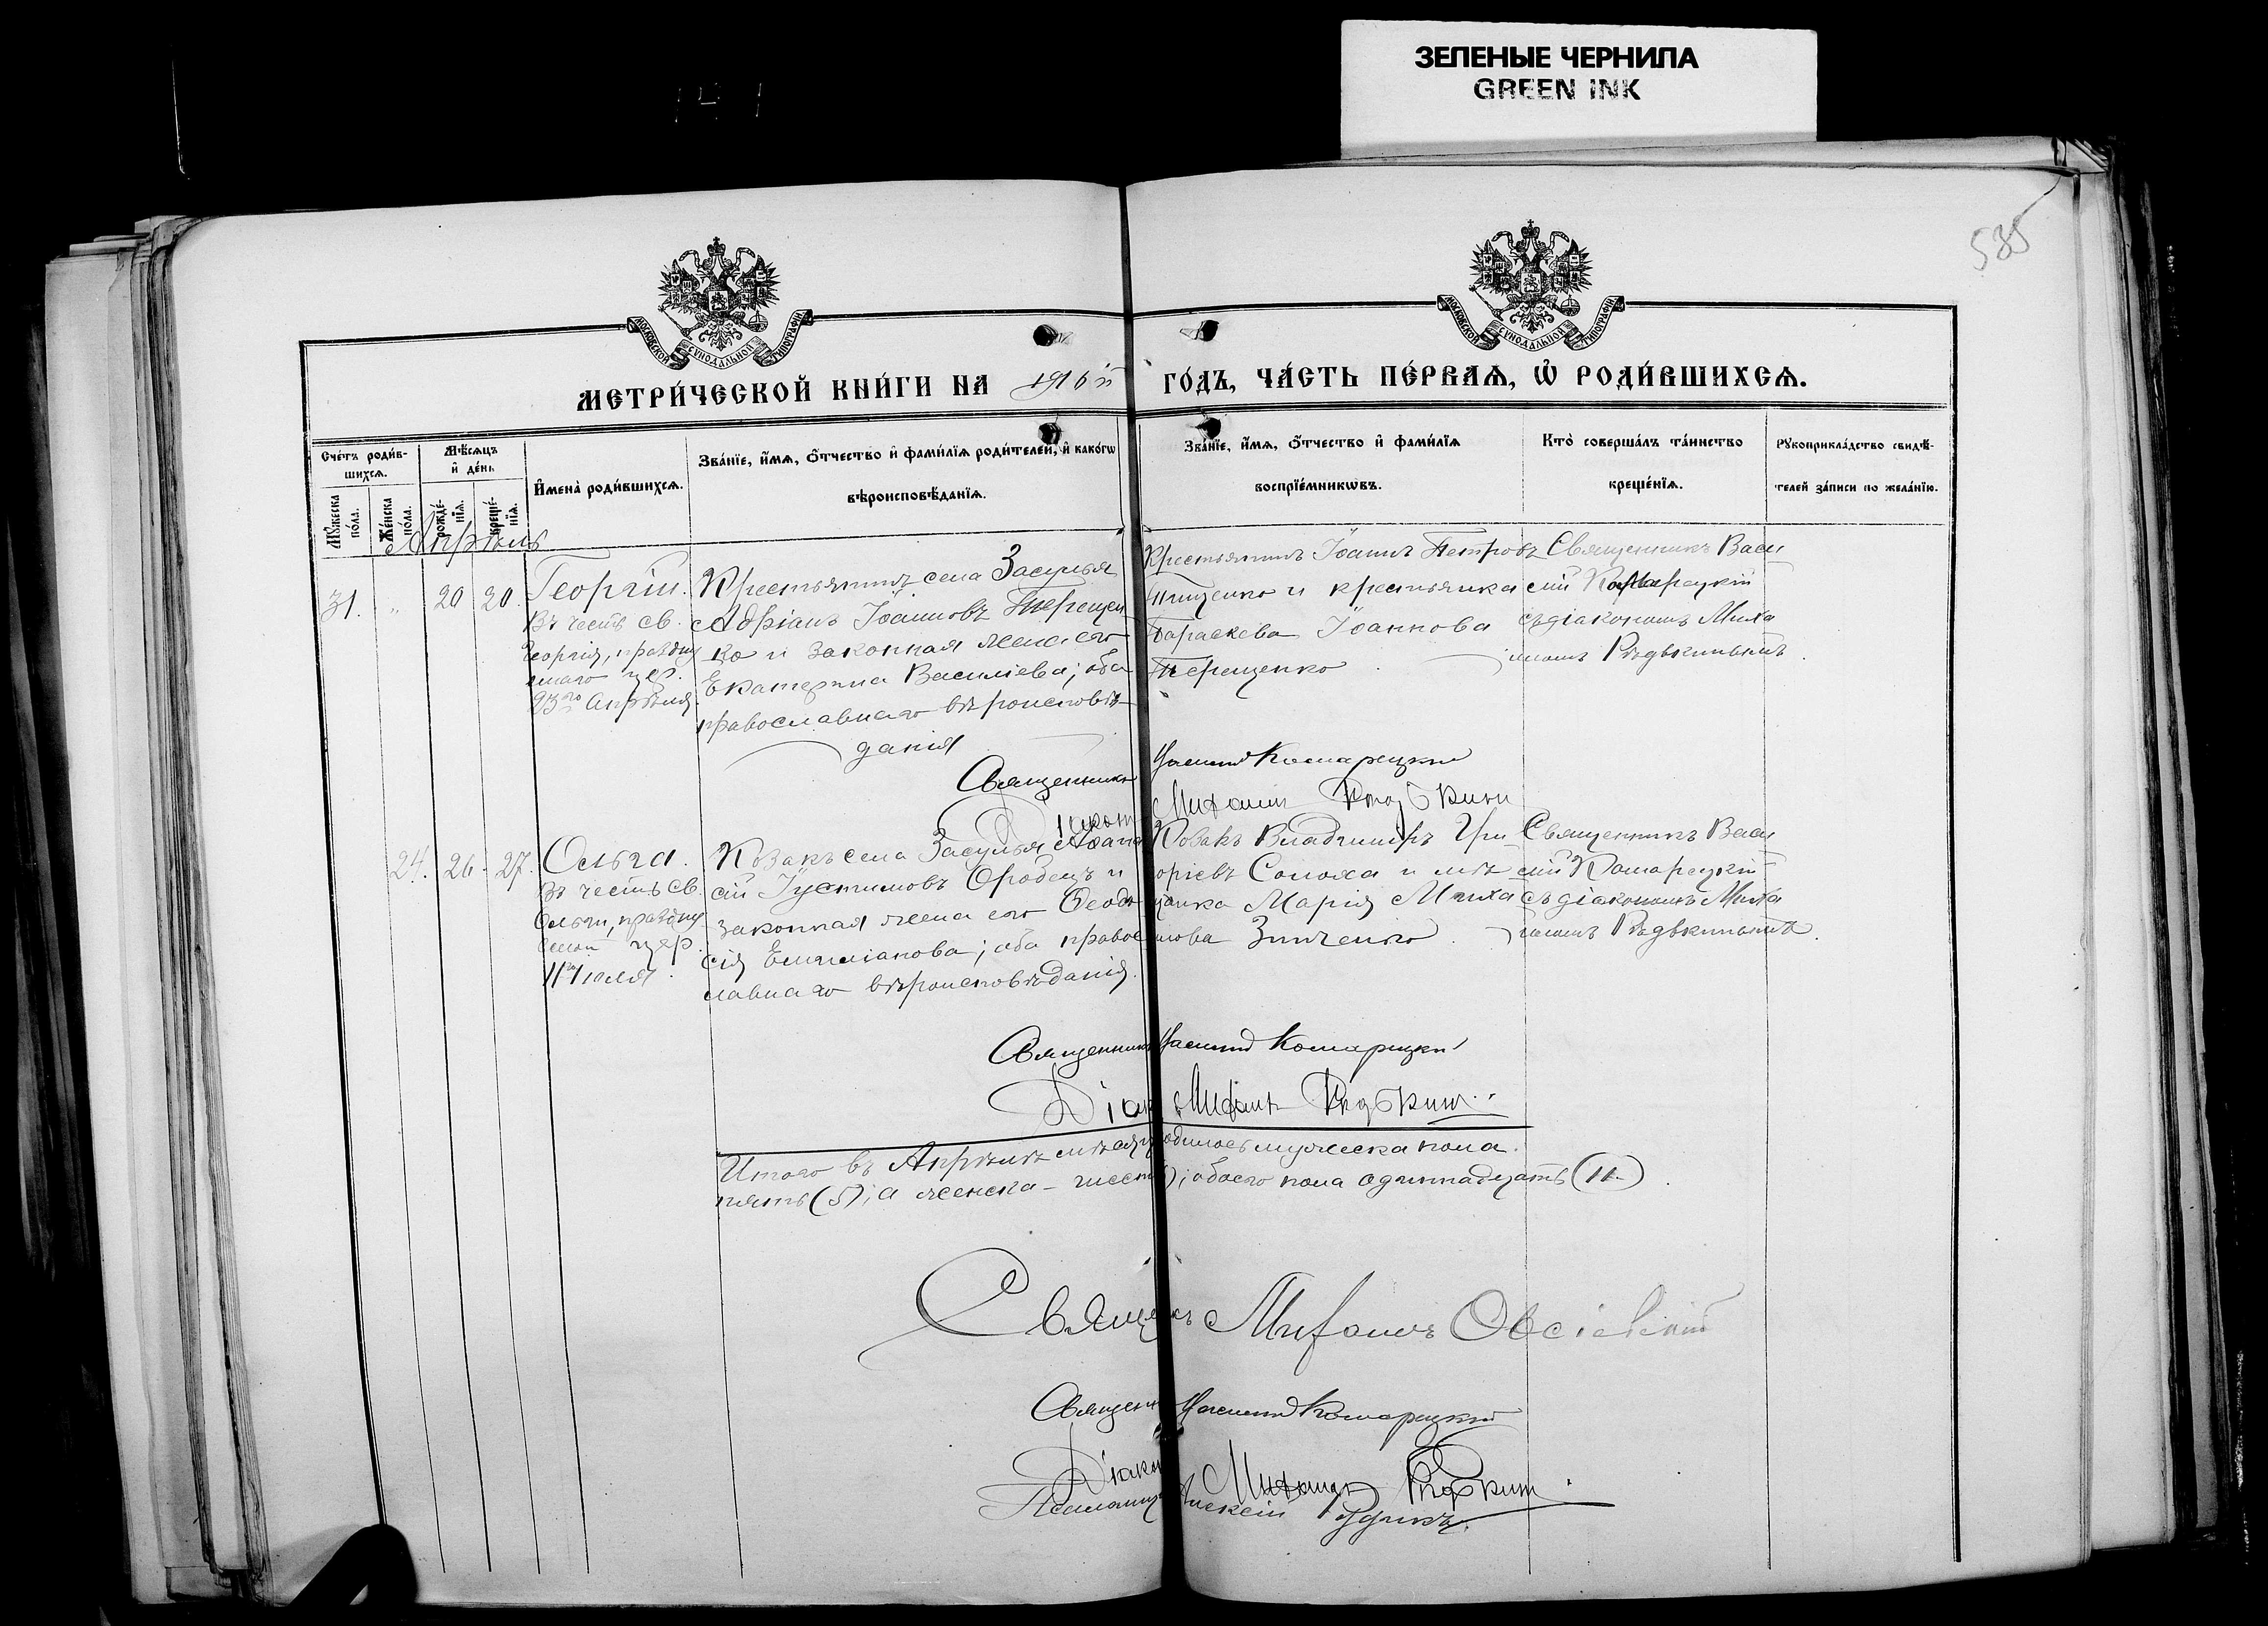 ЗЕЛЕНЫЕ ЧЕРНИЛА
GREEN INK
585
МОСКОВСКОЙ СѴНОДАЛЬНОЙ ТИПОГРАФІИ
МОСКОВСКОЙ СѴНОДАЛЬНОЙ ТИПОГРАФІИ
МЕТРИ́ЧЕСКОЙ КНИ́ГИ НА 1916й ГО́ДЪ, ЧА́СТЬ ПЕ́РВАЯ, Ѡ҆ РОДИ́ВШИХСЯ.
Сче́тъ роди́в-
шихся.
Мѹ́жеска по́ла.
Же́нска по́ла.
Мѣ́сяцъ
и҆ де́нь
рожде́-нїя.
креще́-нїя.
И҆мена̀ роди́вшихся.
Зва́нїе, и҆́мя, ѻ҆́тчество и҆ фами́лїя роди́телей, и҆ како́гѡ
вѣроисповѣ́данїя.
Зва́нїе, и҆́мя, ѻ҆́тчество и҆ фами́лїя
воспрїе́мникѡвъ.
Кто̀ соверша́лъ та́инство
креще́нїя.
Рѹкоприкла́дство свидѣ́-
телей за́писи по жела́нїю.
Апрѣль
31. " 20 20.
Георгій.
Въ честь св.
Георгія, праздну
емаго цер.
23го Апрѣля.
Крестьянинъ села Засулья
Адріанъ Іоанновъ Терещен
ко и законная жена его
Екатерина Василіева; оба
православнаго вѣроисповѣ-
данія
Крестьянинъ Іоаннъ Петровъ
Тищенко и крестьянка
Параскева Іоаннова
Терещенко
Священникъ Васи
лій Комарецкій
съ діакономъ Миха
иломъ
Священникъ Василій Комарецкій
Діаконъ Михаилъ
24. 26. 27.
Ольга.
Въ честь св.
Ольги, праздну
емой цер.
11го Іюля.
Козакъ села Засулья Аѳана
сій Іустиновъ Ородецъ и
законная жена его Ѳеодо
сія Емиліанова; оба право
славнаго вѣроисповѣданія.
Козакъ Владиміръ Гри
горіевъ Солоха и мѣ
щанка Марія Миха
илова Зинченко
Священникъ Васи
лій Комарецкій
съ діакономъ Миха
иломъ
Священникъ Василій Комарецкій
Діаконъ Михаилъ
Итого въ Апрѣлѣ мѣсяцѣ родилось мужеска пола
пять (5); а женска - шесть; обоего пола одиннадцать (11)
Священникъ Михаилъ Овсіевскій
Священникъ Василій Комарецкій
Діаконъ Михаилъ
Псаломщикъ Алексій Рудикъ.